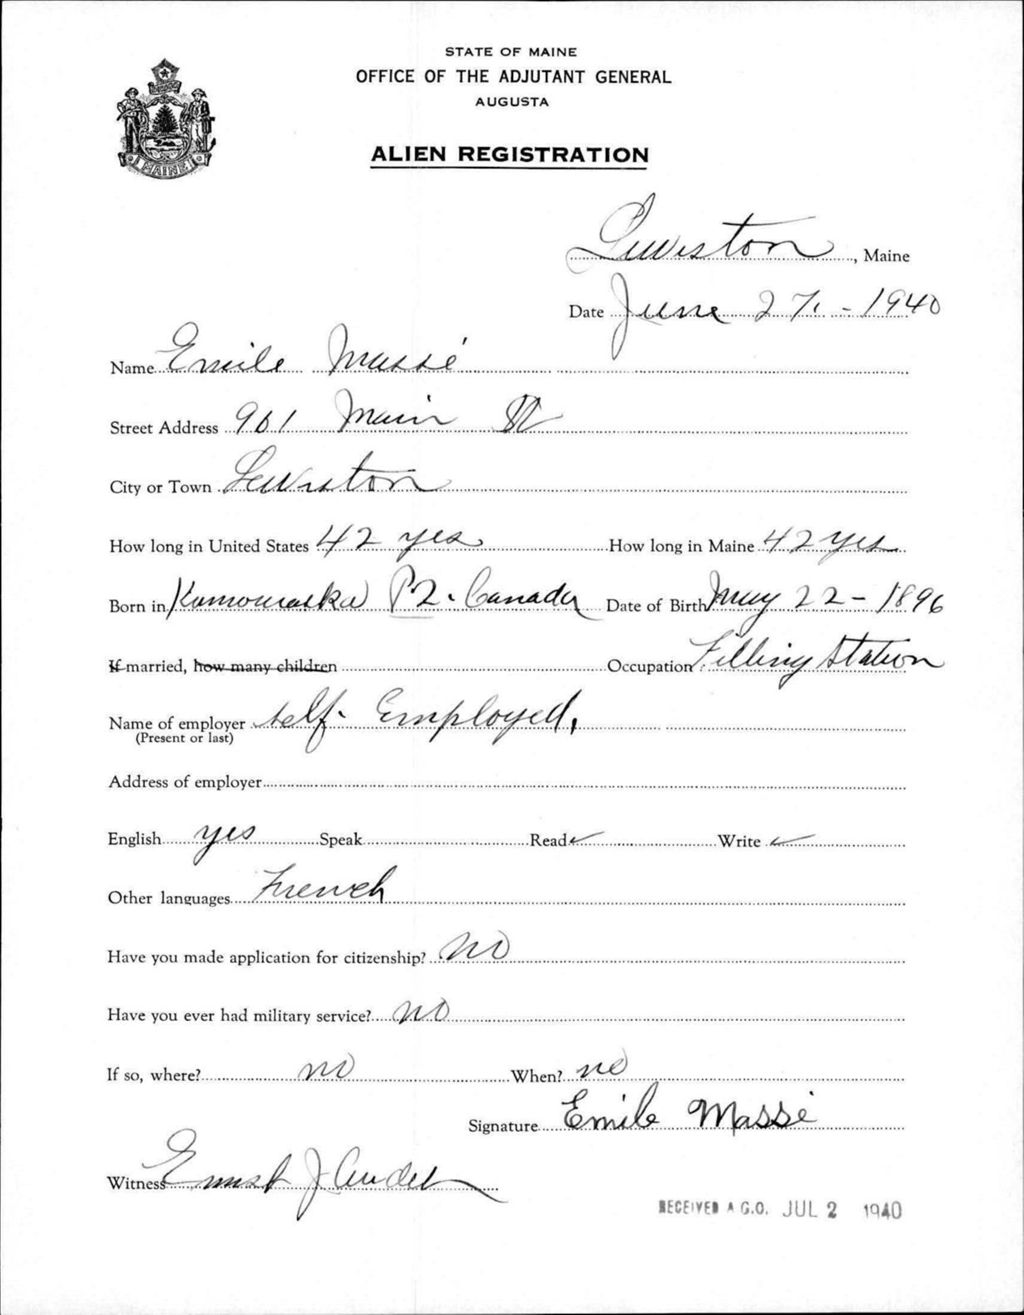 STATE OF MAINE
OFFICE OF THE ADJUTANT GENERAL
AUGUSTA
MAINE
ALIEN REGISTRATION
Lewiston, Maine
Date June 27. - 1940
Name Emile Massé
Street Address 961 Main St
City or Town Lewiston
How long in United States 42 yes How long in Maine 42 yes
Born in Kamouraska P2. Canada Date of Birth May 22 - 1896
If married, how many children Occupation Filling Station
Name of employer self. Employed.
(Present or last)
Address of employer
English yes Speak Read ✓ Write ✓
Other languages French
Have you made application for citizenship? No
Have you ever had military service? no
If so, where? no When? no
Signature Emile Massé
Witness Ernest J Audet
RECEIVED A.G.O. JUL 2 1940